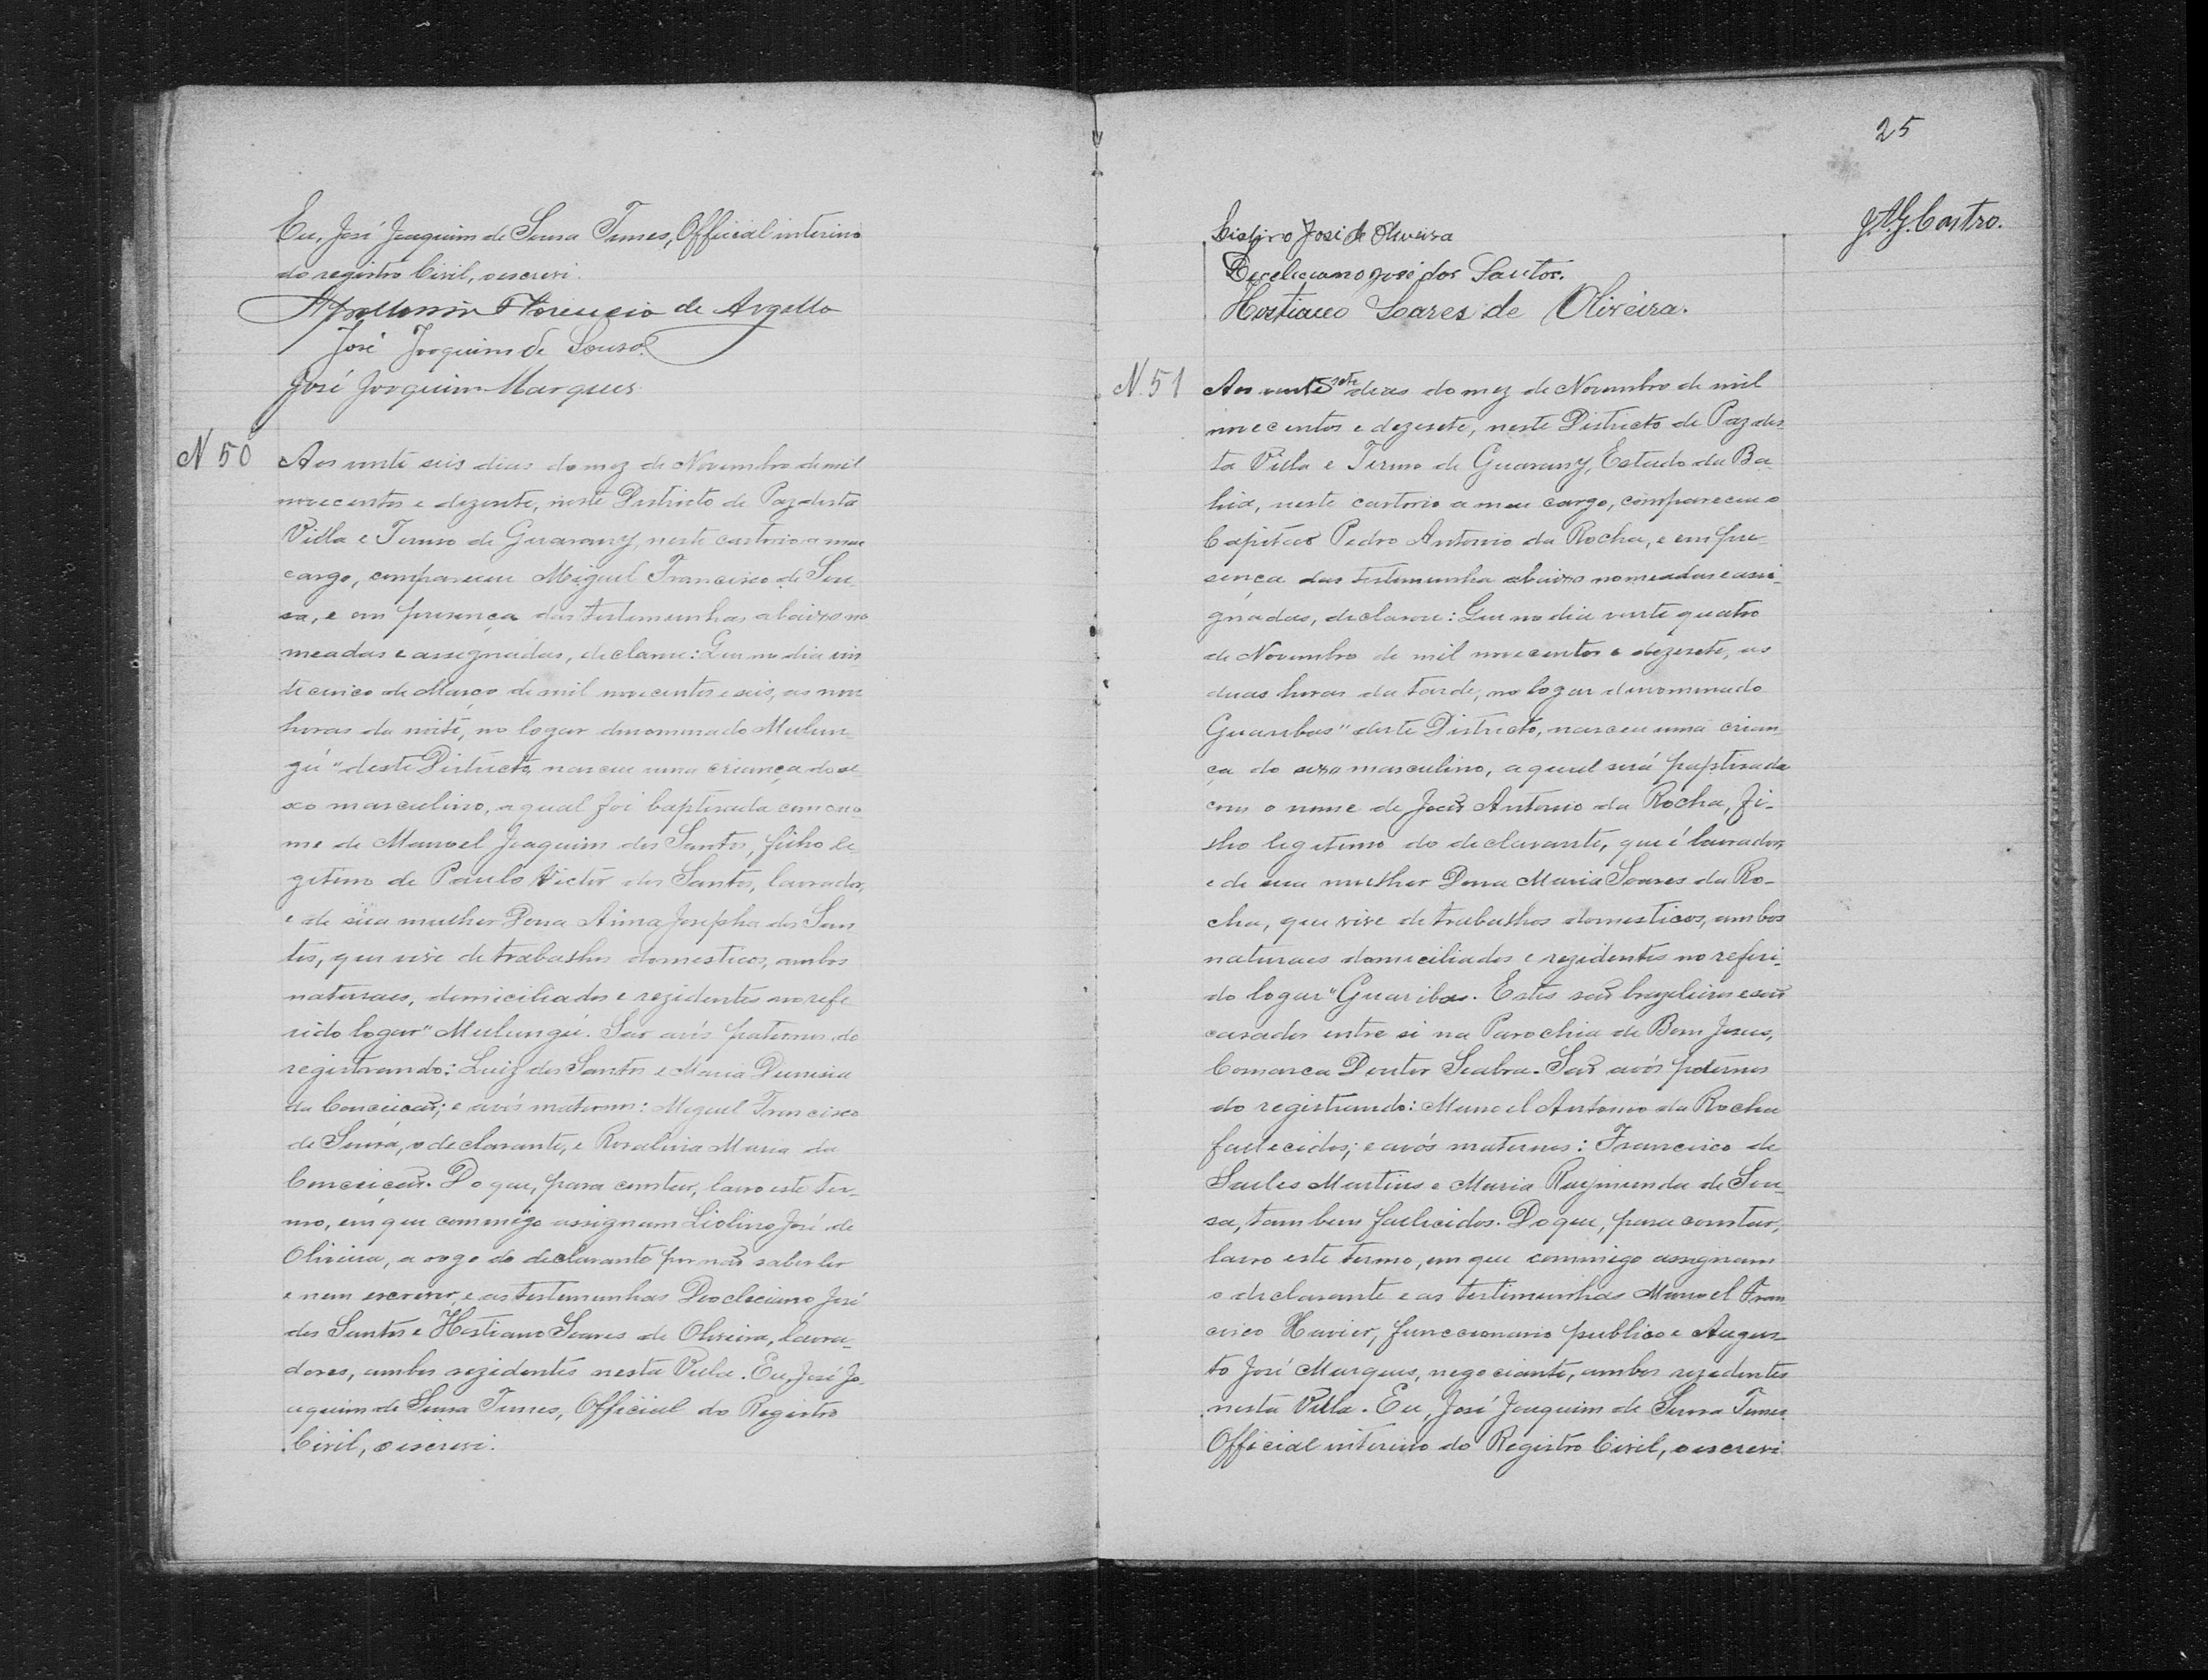 Eu, José Joaquim de Sousa Tunes, Official interino
do registro Civil, o escrevi.
Florencio de Argollo
José Joaquim de Souza
José Joaquim Marques
N 50
Aos vinte seis dias do mez de Novembro de mil
novecentos e dezesete, neste Districto de Paz desta
Villa e Termo de Guarany, neste cartorio a meu
cargo, compareceu Miguel Francisco de Sou-
sa, e em presença das testemunhas abaixo no
meadas e assignadas, declarou: Que no dia vin
te cinco de Março de mil novecentos e seis, as nove
horas da noite, no logar denominado Mulun-
gú" deste Districto, nasceu uma criança do se
xo masculino, a qual foi baptisada com o no-
me de Manoel Joaquim dos Santos, filho le-
gitimo de Paulo Victor dos Santos, lavrador,
e de sua mulher Dona Anna Josepha dos San
tos, que vive de trabalhos domesticos, ambos
naturaes, domiciliados e rezidentes no refe
rido logar "Mulungú. São avós paternos do
registrando: Luiz dos Santos e Maria Dunisia
da Conceicão; e avós maternos: Miguel Francisco
de Sousa, o declarante, e Rosalina Maria da
Conceicão. Do que, para constar, lavro este ter-
mo, em que commigo assignam Liolino José de
Oliveira, a rogo do declarante por não saber ler
e nem escrever, e as testemunhas Deocleciano José
dos Santos e Hostiano Soares de Oliveira, lavra-
dores, ambos rezidentes nesta Villa. Eu, José Jo-
aquim de Sousa Tunes, Official do Registro
Civil, o escrevi.
25
J.A.G. Castro.
José de Oliveira
Deocleciano José dos Santos.
Hostiano Soares de Oliveira.
N. 51
Aos vinte sete dias do mez de Novembro de mil
novecentos e dezesete, neste Districto de Paz des
ta Villa e Termo de Guarany, Estado da Ba-
hia, neste cartorio a meu cargo, compareceu o
Capitão Pedro Antonio da Rocha, e em pre-
sença das testemunha abaixo nomeadas e assi-
gnadas, declarou: Que no dia vinte quatro
de Novembro de mil novecentos e dezesete, as
duas horas da tarde, no logar denominado
Guaribas" deste Districto, nasceu uma crian
ça do sexo masculino, a qual será paptisada
com o nome de João Antonio da Rocha, fi-
lho legitimo do declarante, que é lavrador,
e de sua mulher Dona Maria Soares da Ro-
cha, que vive de trabalhos domesticos, ambos
naturaes domiciliados e rezidentes no referi-
do logar "Guaribas. Estes são brazileiros e são
casados entre si na Parochia de Bom Jesus,
Comarca Doutor Seabra. São avós paternos
do registrando: Manoel Antonio da Rocha
fallecidos; e avós maternos: Francisco de
Sales Martins e Maria Raymunda de Sou-
sa, tambem fallecidos. Do que, para constar,
lavro este termo, em que commigo assignam
o declarante e as testimunhas Manoel Fran
cisco Xavier, funccionario publico e Augus-
to José Marques, negociante, ambos rezidentes
nesta Villa. Eu, José Joaquim de Sousa Tunes
Official interino do Registro Civil, o escrevi